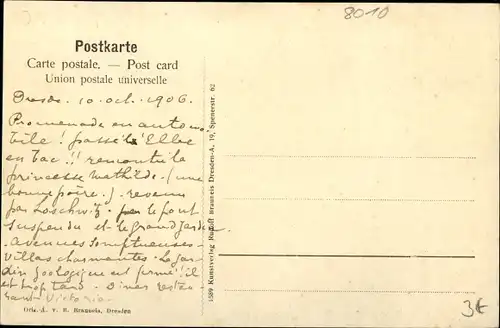 8010
Postkarte
Carte postale. — Post card
Union postale universelle
Dresde. 10. oct. 1906.
Promenade en automo-
bile! passé l'Elbe
en bac!! remonté la
princesse Mathilde. (une
bonne poire.) revenus
par Loschwitz. le pont
suspendu et le grand jardin
avenues somptueuses -
villas charmantes. Le jar-
din zoologique est fermé! il
est trop tard. Diner restau-
rant Victoria.
Orig. A. v. R. Brauneis, Dresden
3589 Kunstverlag Rudolf Brauneis Dresden-A. 19, Spenerstr. 62
3€